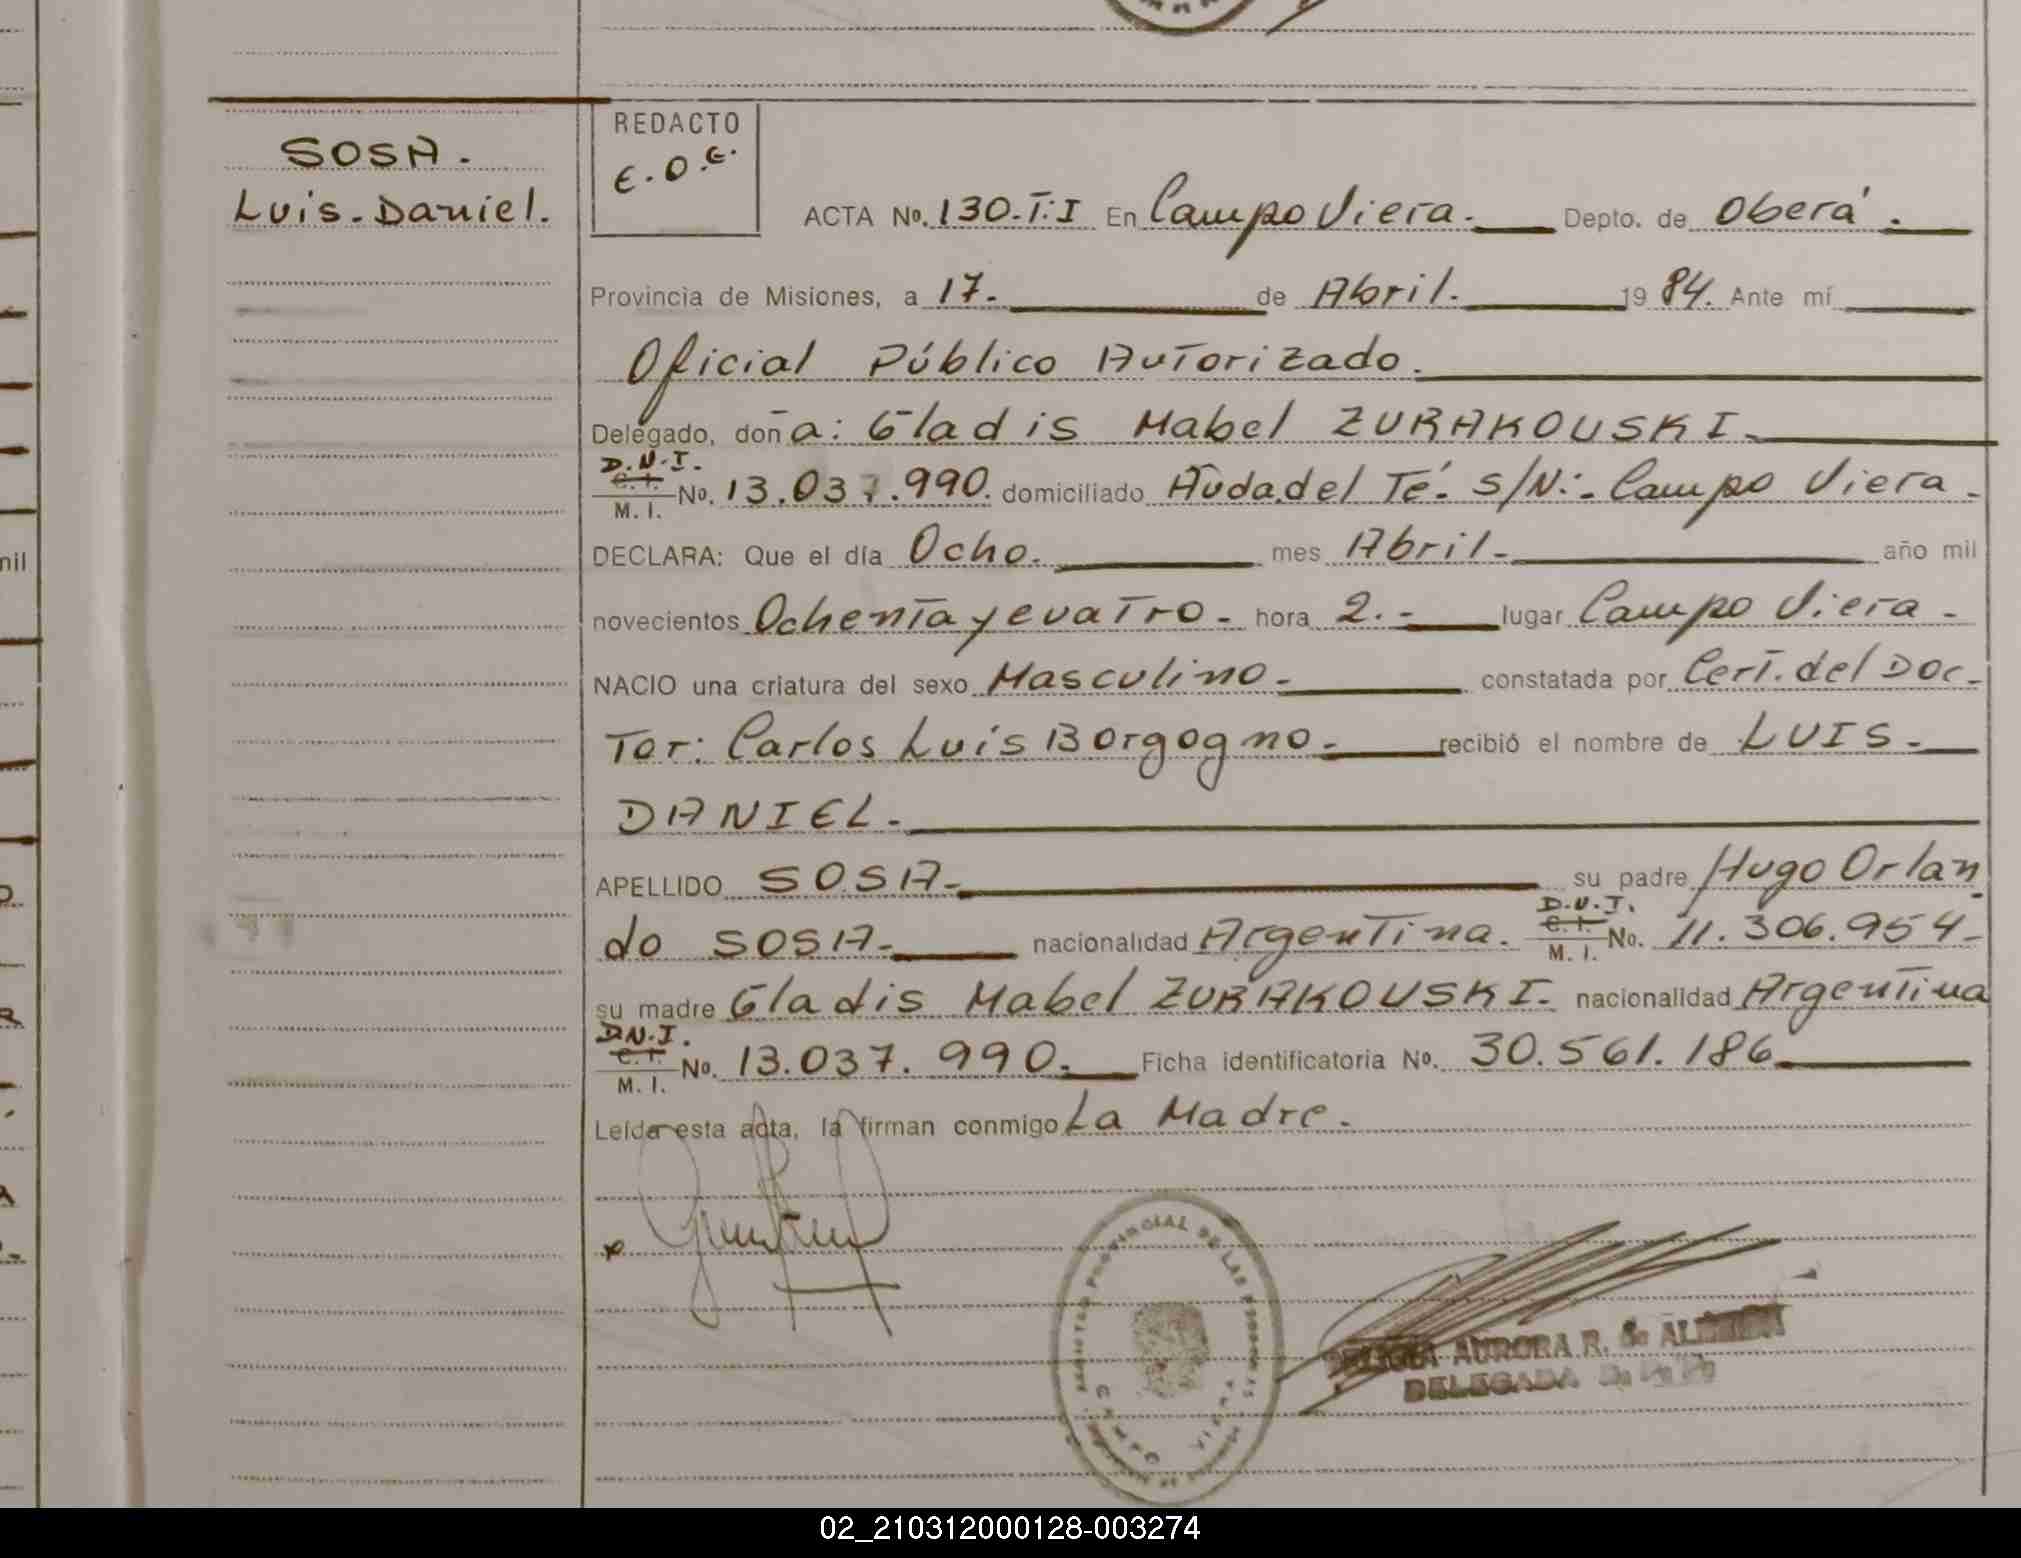 SOSA.
Luis-Daniel.
REDACTO
E.O.G.
ACTA No. 130.T:I En Campo Viera. Depto. de Oberá.
Provincia de Misiones, a 17. de Abril. 19 84. Ante mí
Oficial Público Autorizado.
Delegado, doñ a: Gladis Mabel ZURAKOUSKI.
D.N.I.
C. I.
M. I. No. 13.037.990. domiciliado Avda. del Té. S/N:. Campo Viera.
DECLARA: Que el día Ocho. mes Abril. año mil
novecientos Ochenta y cuatro. hora 2.- lugar Campo Viera.
NACIO una criatura del sexo Masculino. constatada por Cert. del Doc-
Tor: Carlos Luis Borgogno. recibió el nombre de LUIS.
DANIEL.
APELLIDO SOSA. su padre Hugo Orlan
D.N.I.
do SOSA. nacionalidad Argentina. C. I. M. I. No. 11.306.954-
su madre Gladis Mabel ZURAKOUSKI. nacionalidad Argentina
D.N.I.
C. I.
M. I. No. 13.037.990. Ficha identificatoria No. 30.561.186
Leída esta acta, la firman conmigo La Madre.
AURORA R. de
DELEGADA
nil
02_210312000128-003274